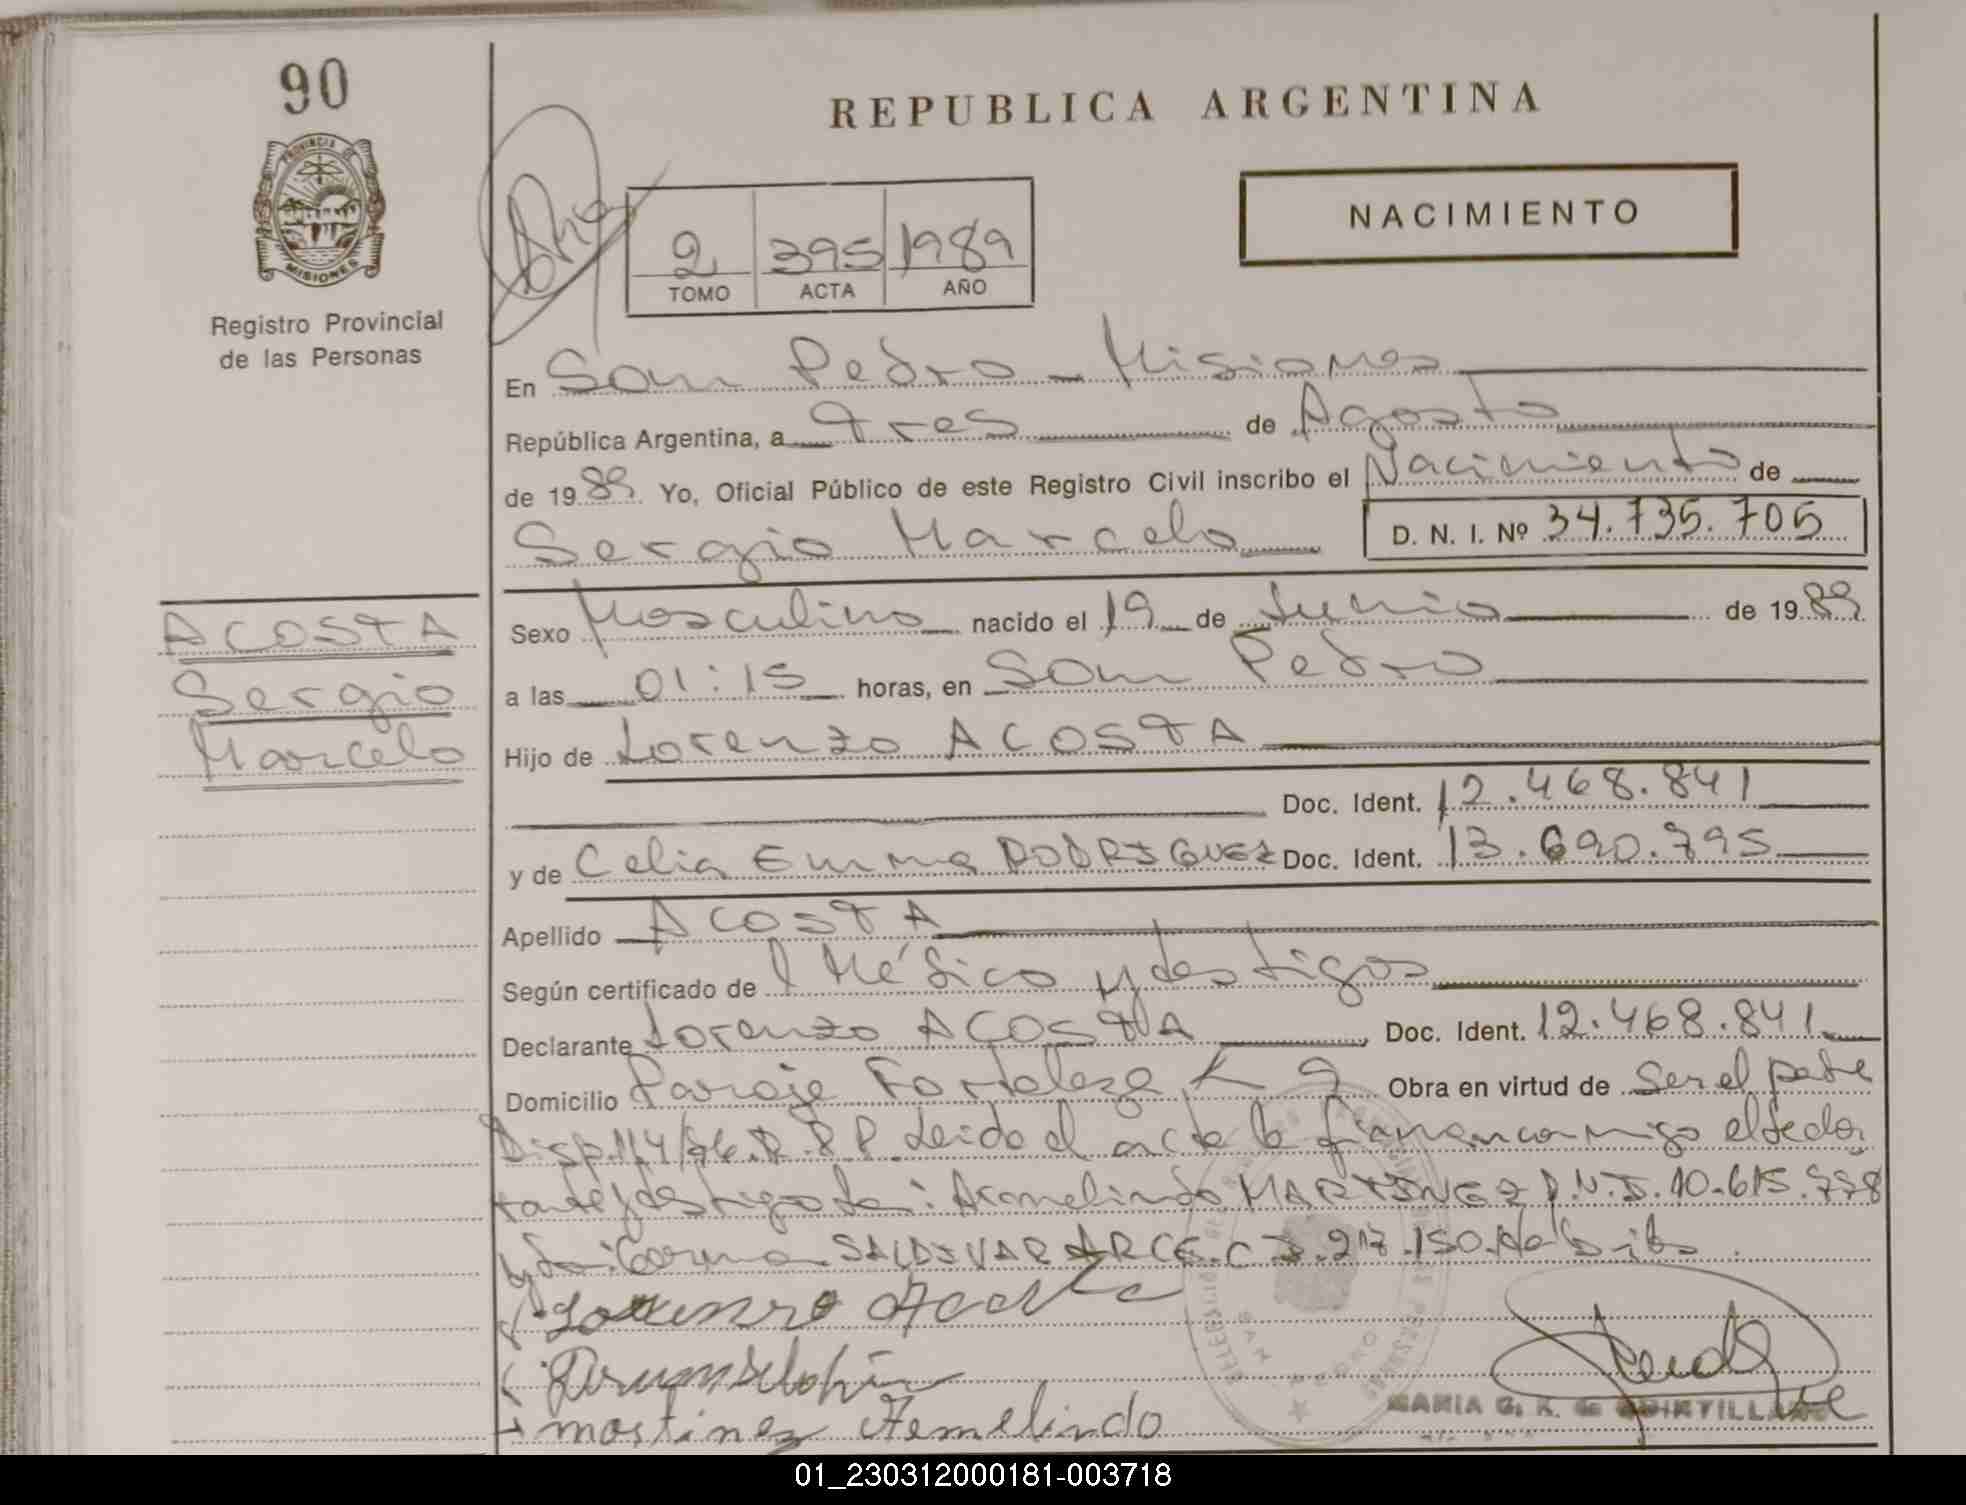 90
PROVINCIA DE
MISIONES
Registro Provincial
de las Personas
REPUBLICA ARGENTINA
NACIMIENTO
2 395 1989
TOMO ACTA AÑO
En San Pedro - Misiones
República Argentina, a tres de Agosto
de 1989 Yo, Oficial Público de este Registro Civil inscribo el Nacimiento de
Sergio Marcelo D. N. I. Nº 34.735.705
ACOSTA
Sergio
Marcelo
Sexo Masculino nacido el 19 de Junio de 1989
a las 01:15 horas, en San Pedro
Hijo de Lorenzo ACOSTA
Doc. Ident. 12.468.841
y de Celia Emma RODRIGUEZ Doc. Ident. 13.690.795
Apellido ACOSTA
Según certificado de l Médico y testigos
Declarante Lorenzo ACOSTA Doc. Ident. 12.468.841
Domicilio Paraje Fortaleza K 9 Obra en virtud de ser el padre
Disp. 114/76. R. P. P. Leida el acta la firman conmigo el declar
ante y testigos Armelindo MARTINEZ D.N.I. 10.615.778
SALDIVAR ARCE. C I. 217.150
Lorenzo Acosta
martinez Armelindo
SAN PEDRO
MARIA G. K. de QUINTILLAN
01_230312000181-003718